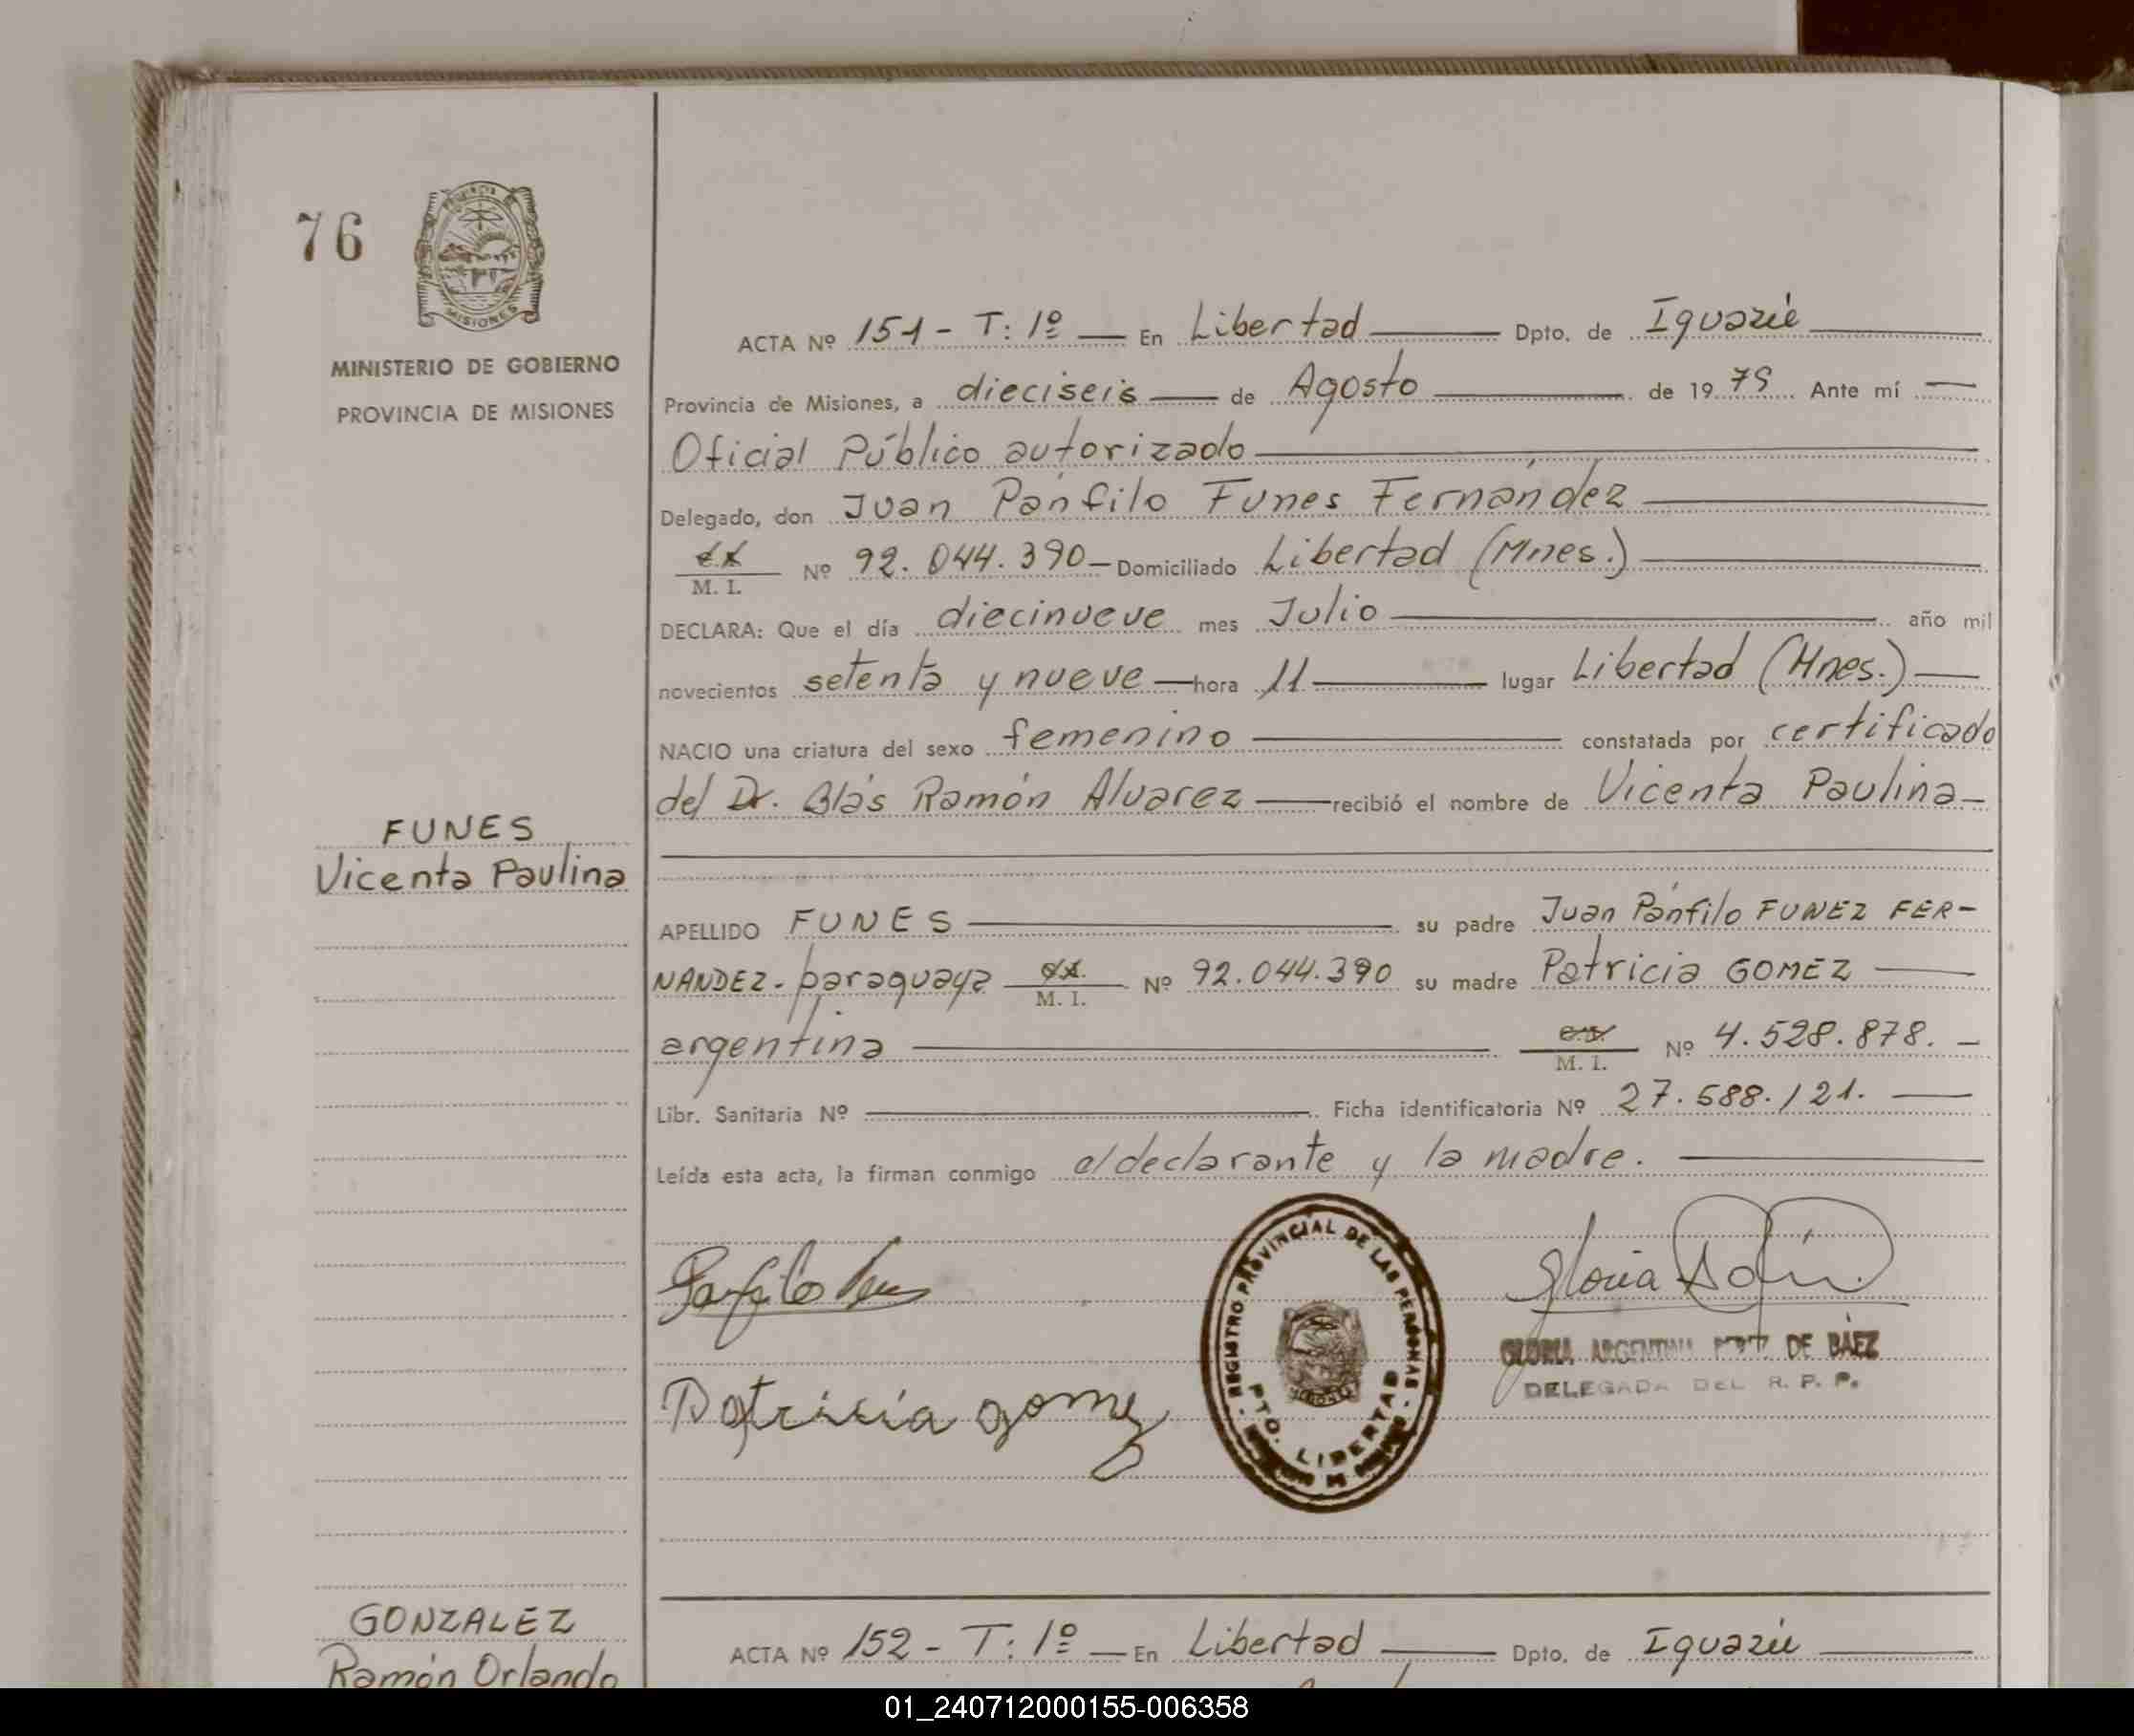 76
PROVINCIA
MISIONES
MINISTERIO DE GOBIERNO
PROVINCIA DE MISIONES
ACTA Nº 151 - T: 1º — En Libertad Dpto. de Iguazú
Provincia de Misiones, a dieciseis de Agosto de 1979 Ante mí
Oficial Público autorizado
Delegado, don Juan Pánfilo Funes Fernández
M. I. Nº 92.044.390 - Domiciliado Libertad (Mnes.)
DECLARA: Que el día diecinueve mes Julio año mil
novecientos setenta y nueve — hora 11 lugar Libertad (Mnes.)
NACIO una criatura del sexo femenino constatada por certificado
del Dr. Blás Ramón Alvarez recibió el nombre de Vicenta Paulina
FUNES
Vicenta Paulina
APELLIDO FUNES su padre Juan Pánfilo FUNEZ FER-
NANDEZ - paraguaya M. I. Nº 92.044.390 su madre Patricia GOMEZ
argentina M. I. Nº 4.528.878. -
Libr. Sanitaria Nº Ficha identificatoria Nº 27.588.121.
Leída esta acta, la firman conmigo el declarante y la madre.
Patricia gomez
REGISTRO PROVINCIAL DE LAS PERSONAS
PTO. LIBERTAD
Gloria
GLORIA ARGENTINA DE BAEZ
DELEGADA DEL R. P. P.
GONZALEZ
Ramón Orlando
ACTA Nº 152 - T: 1º — En Libertad Dpto. de Iguazú
01_240712000155-006358